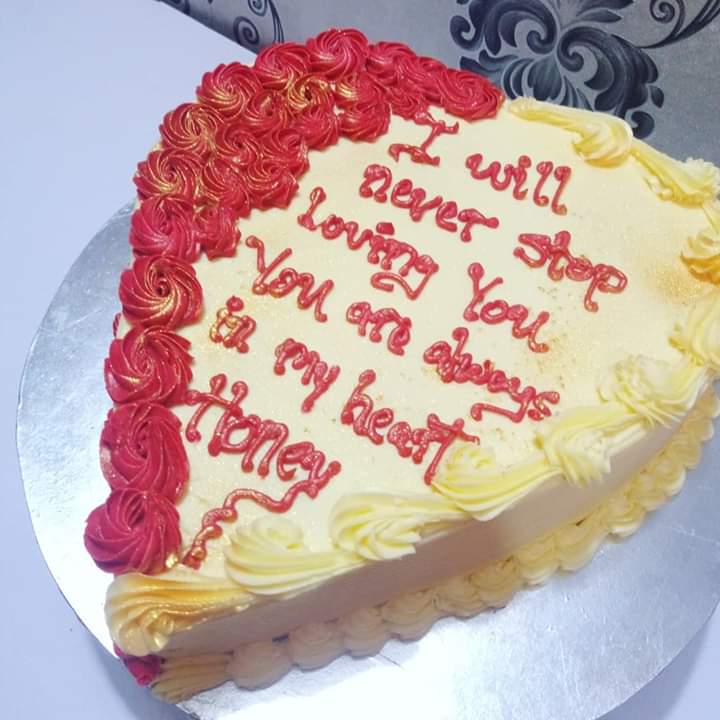 I will
never stop
Loving You
You are always
in my heart
Honey